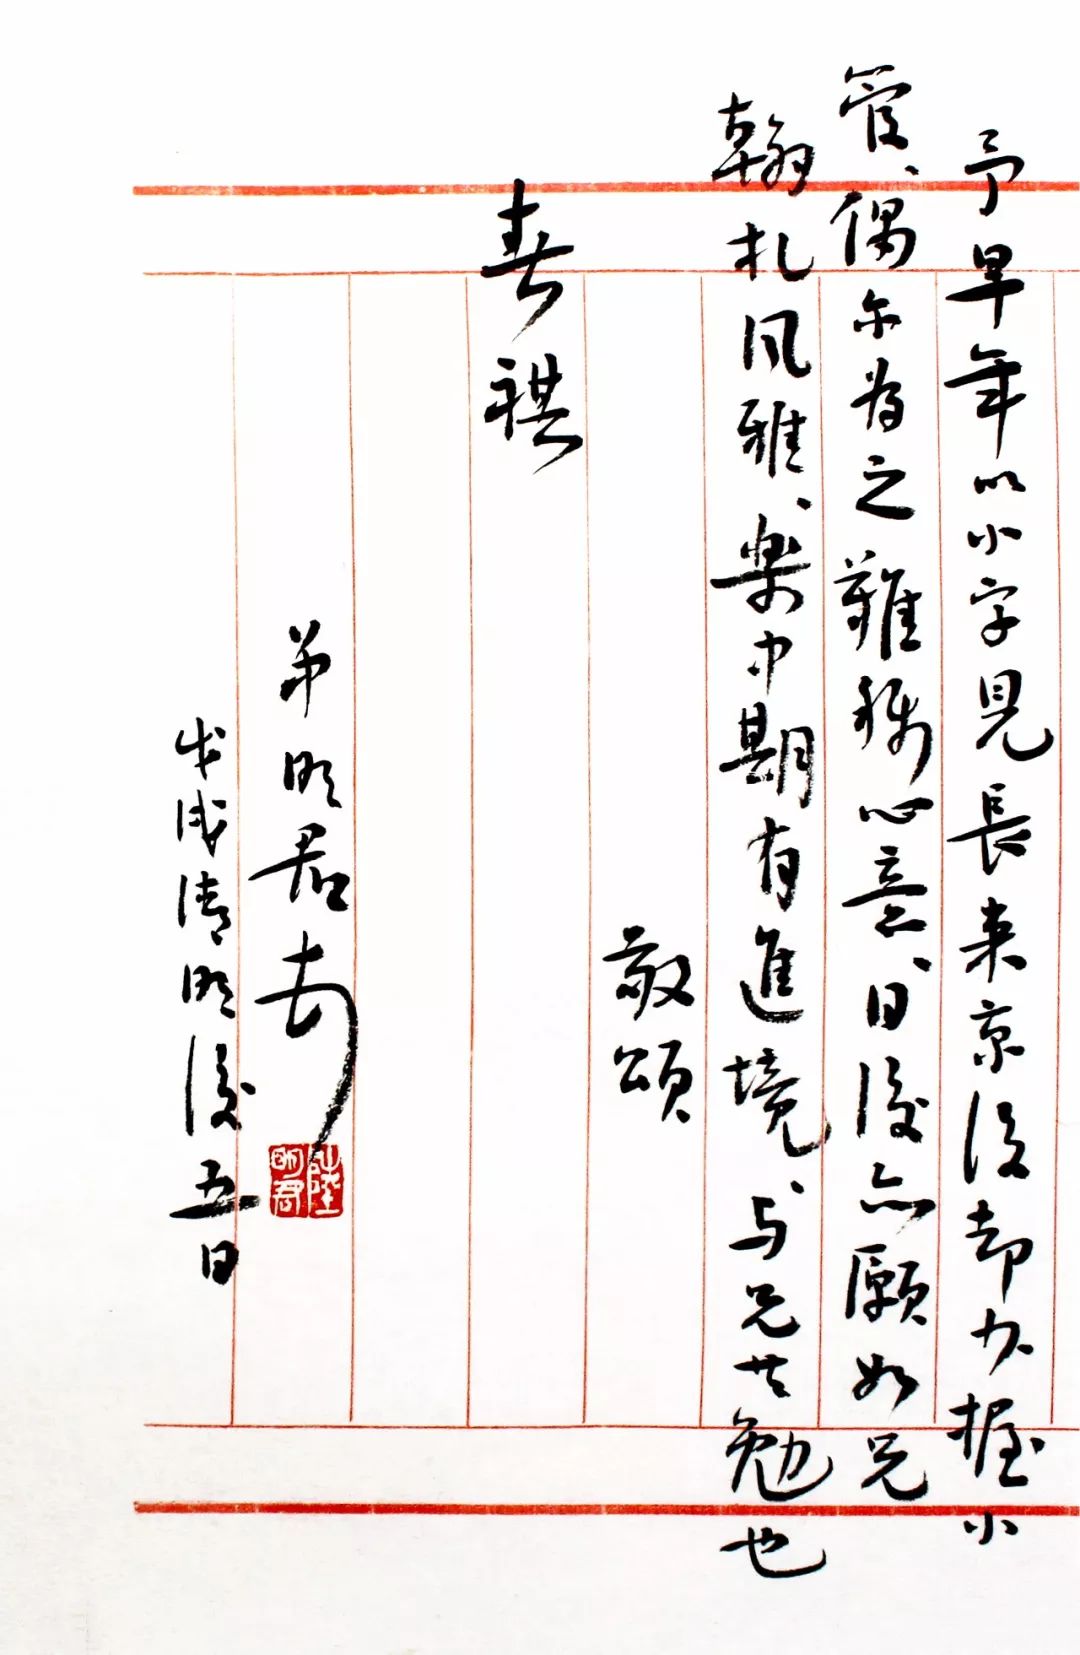 予早年以小字見長来京後却少握小
管、偶尔為之難称心意、日後亦願如兄
翰札风雅、樂中期有進境、与兄共勉也
敬頌
春祺
弟明君頓
戊戌清明後五日
陸明君